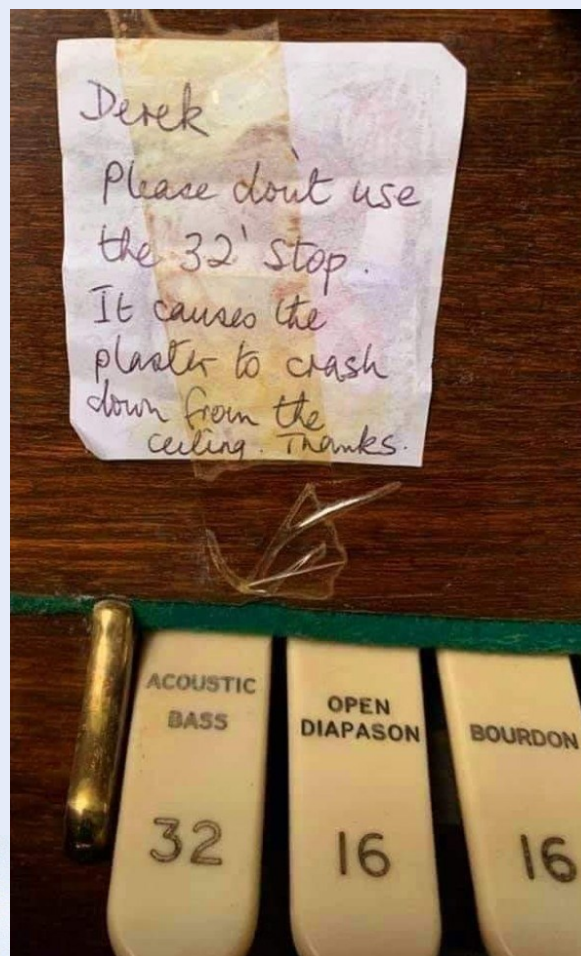 Derek
Please don't use
the 32' stop.
It causes the
plaster to crash
down from the
ceiling. Thanks.
ACOUSTIC
BASS
32
OPEN
DIAPASON
16
BOURDON
16